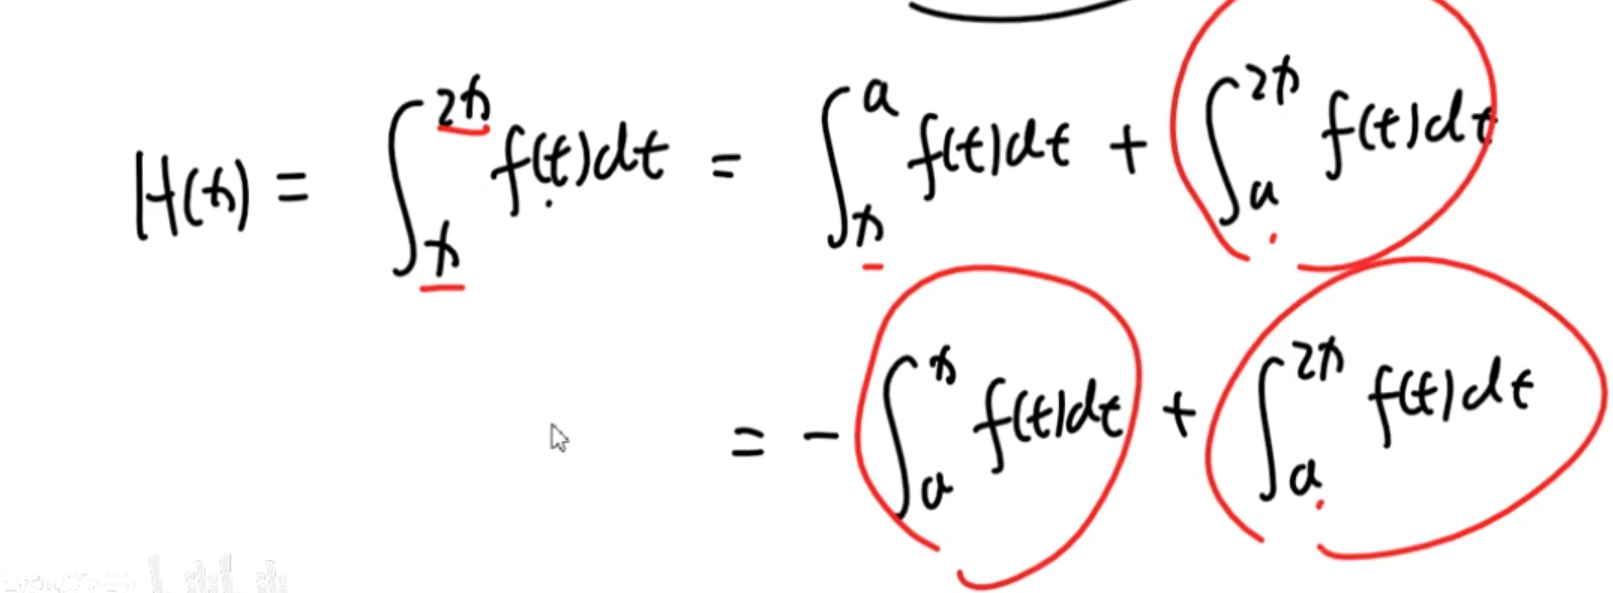 H(x) = ∫_x^{2x} f(t)dt = ∫_x^a f(t)dt + ∫_a^{2x} f(t)dt
= - ∫_a^x f(t)dt + ∫_a^{2x} f(t)dt